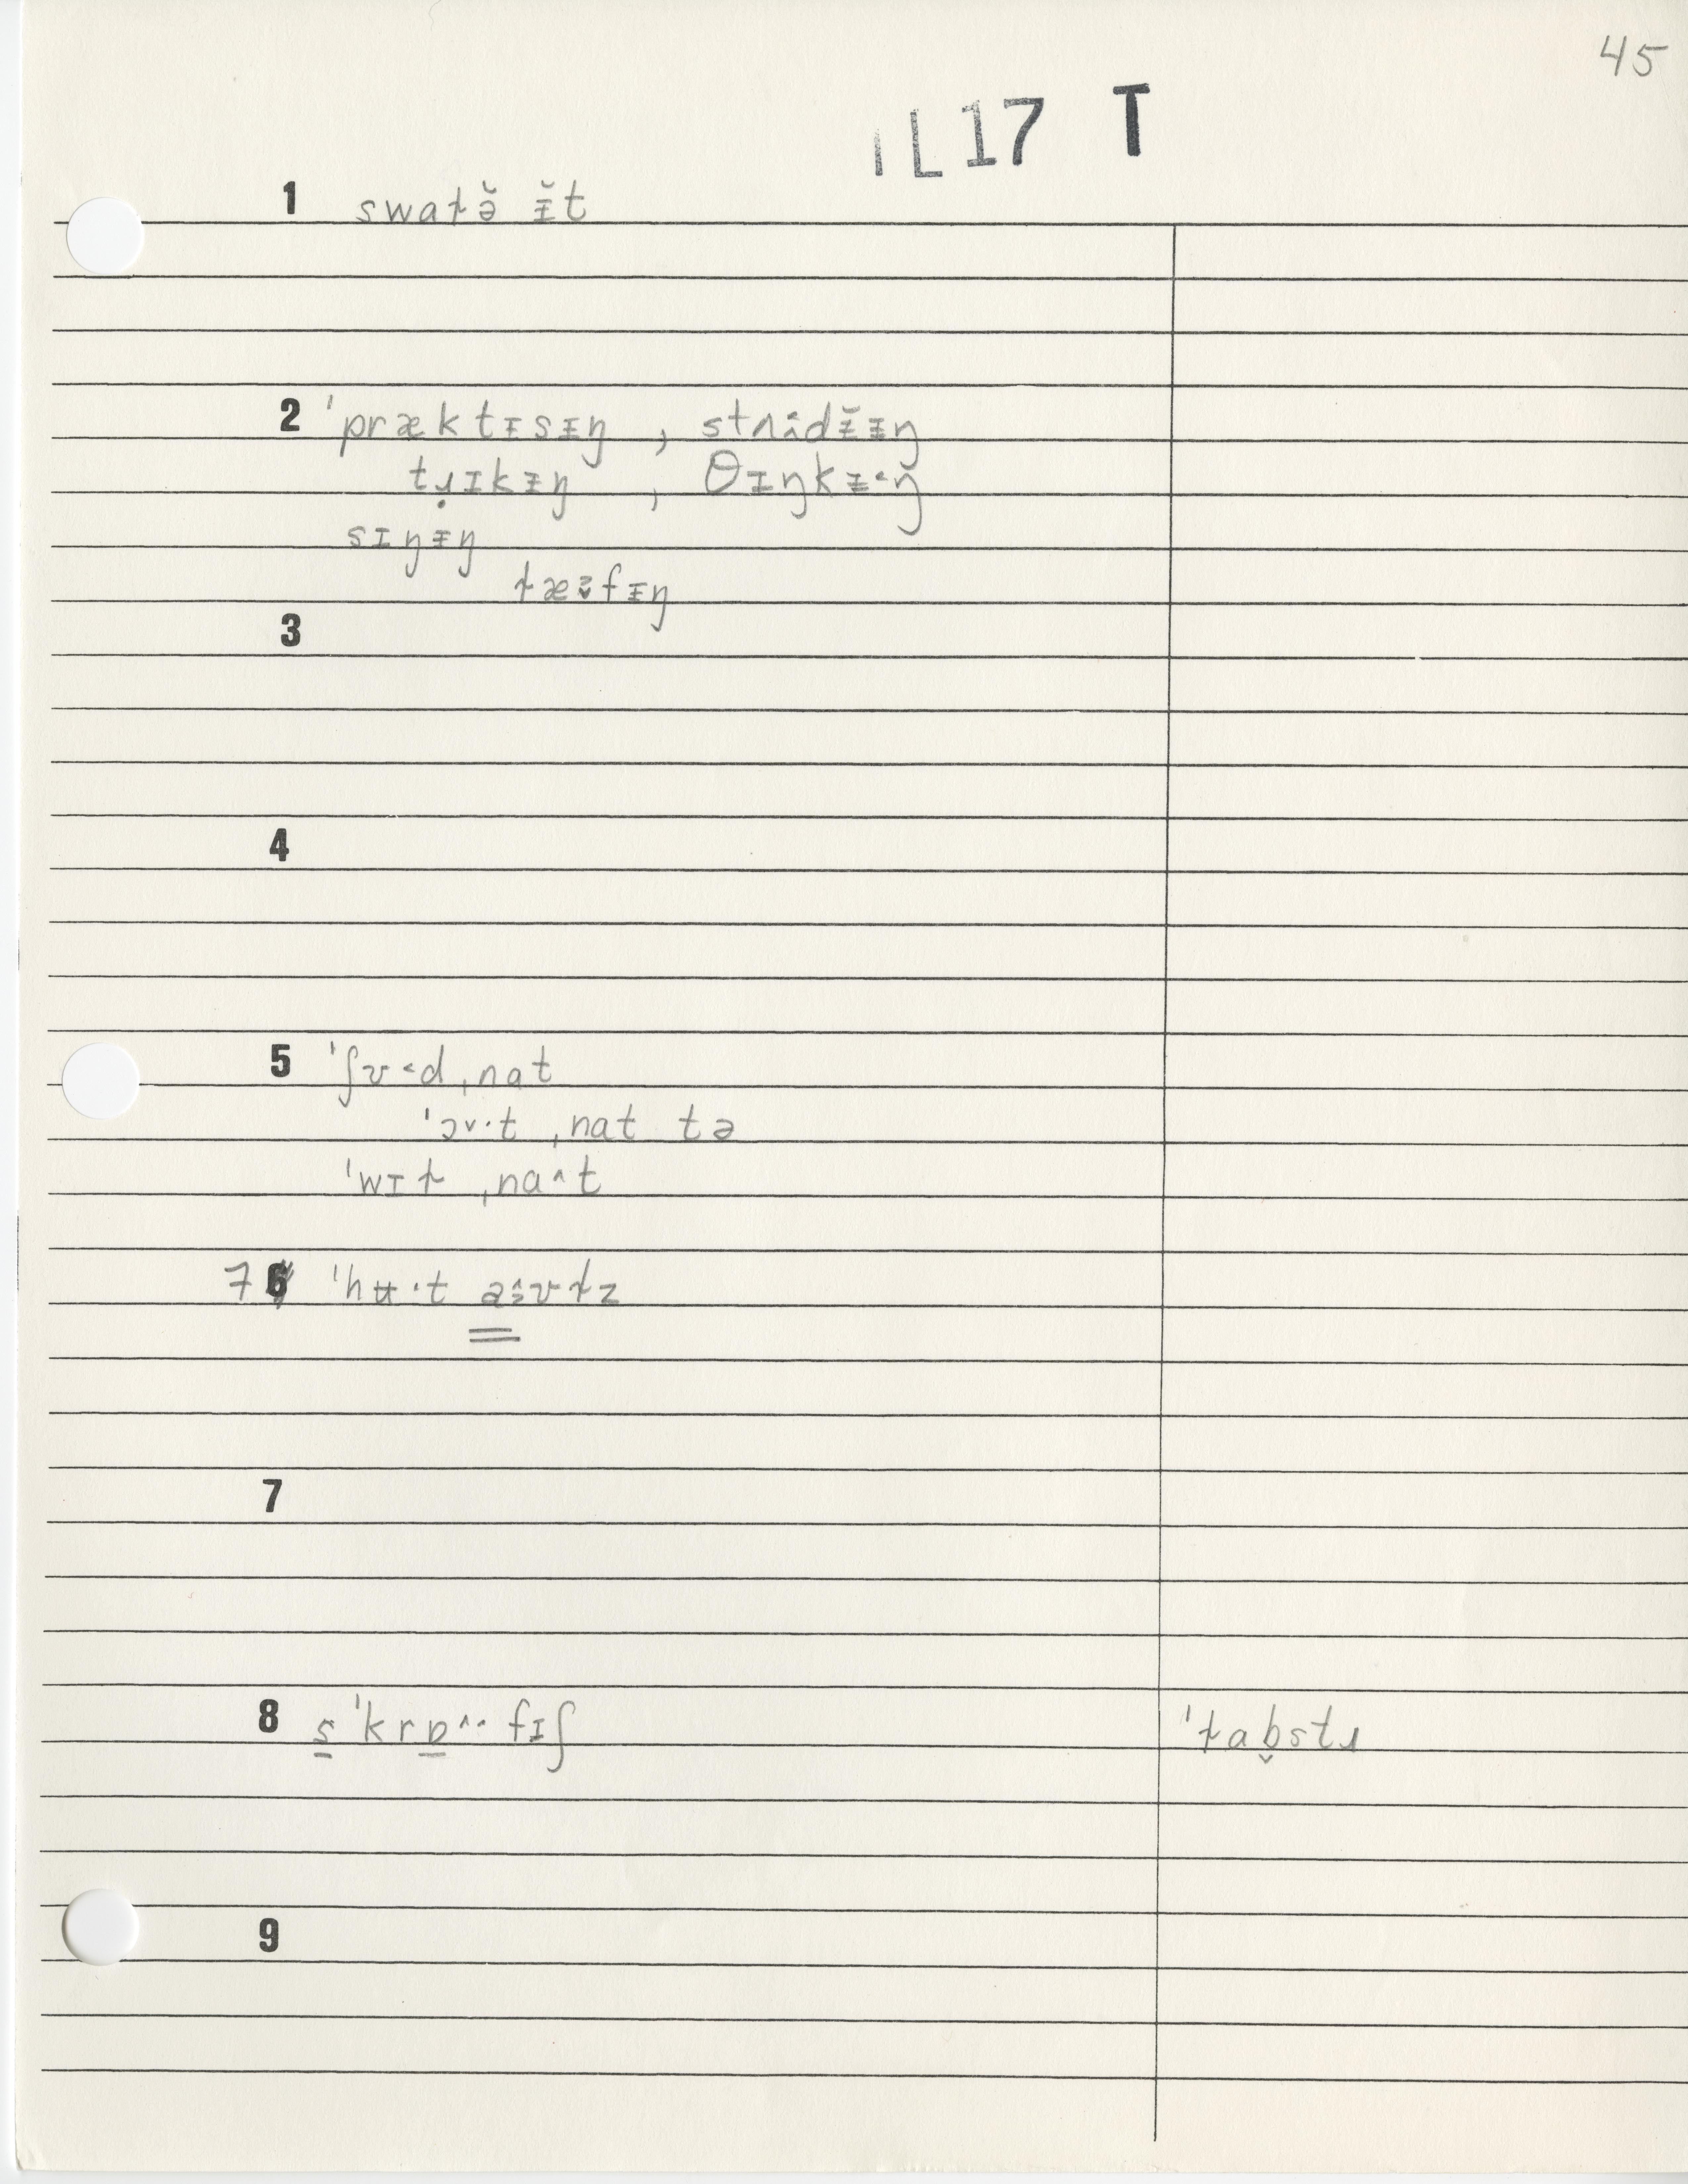 45
IL17 T
1 swaɫə̆ ᵻ̆t
2 ˈpræktɪsɪŋ , stʌ̂ɪdᵻ̆ᵻŋ
tɹ̣ɪkᵻŋ , θɪŋkᵻ˂ŋ
sɪŋᵻŋ
ɫæɜ̬fᵻŋ
3
4
5 ˈʃʊ˂d ˌnat
ˈɔ˅·t ˌnat tə
ˈwɪɫ ˌna^t
7 6 ˈhʉ·t aɜ̂ʊɫz
7
8 s̱ˈkrɒ̱^·· fɪʃ ˈɫab̬stɹ
9